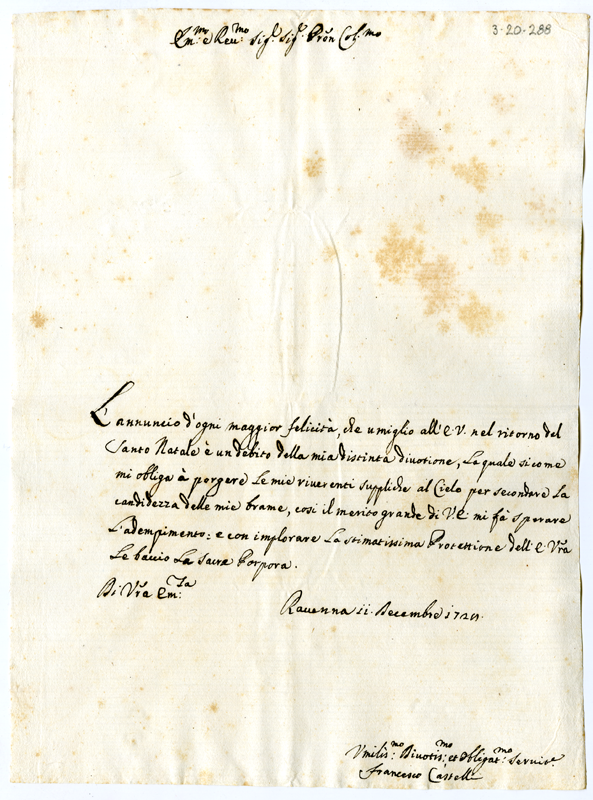 Em:mo e Reu:mo Sig.r Sig.r Pron Col:mo
3-20-288
L'annuncio d'ogni maggior felicità, che umiglio all'E.V. nel ritorno del
Santo Natale è un debito della mia distinta divotione, La quale sicome
mi obliga à porgere Le mie riverenti suppliche al Cielo per secondare La
candidezza delle mie brame, così il merito grande di V.E. mi fà sperare
L'adempimento: e con implorare La stimatissima Protettione dell'E. Vra
Le baccio La Sacra Porpora.
Di Vra Em:za
Ravenna 11. Decembre
Vmilis:mo Divotis:mo et obligat:mo Servit.e
Francesco Castelli